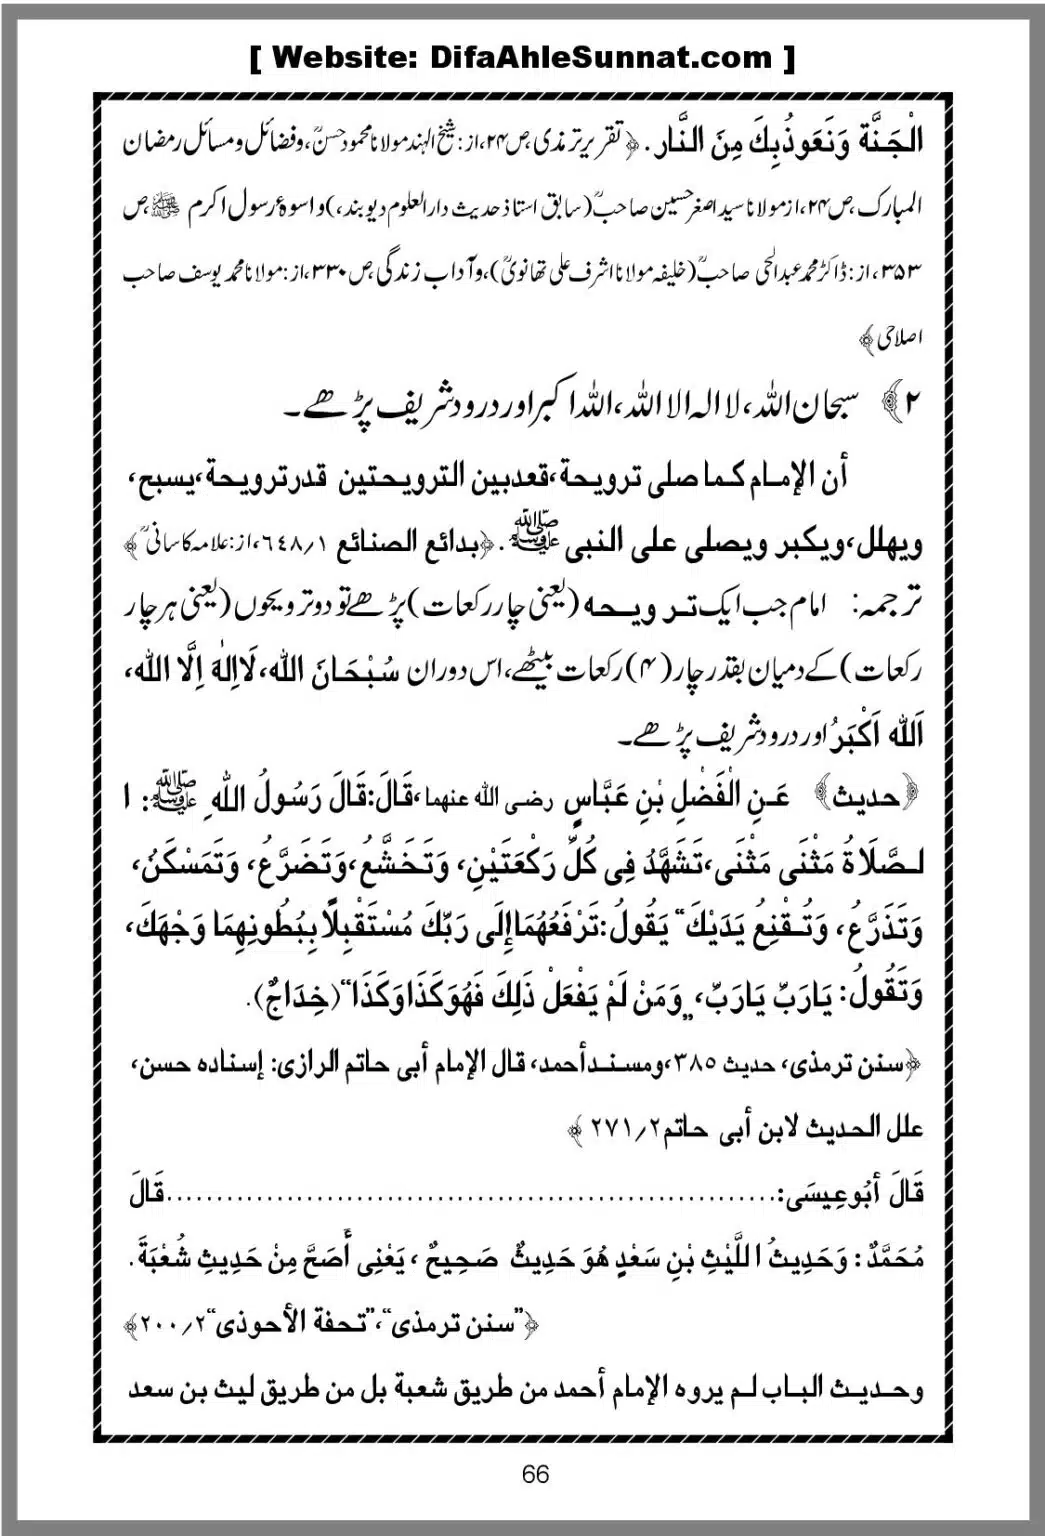 [ Website: DifaAhleSunnat.com ]
الْجَنَّة وَنَعَوذُبِكَ مِنَ النَّار. ﴿تقریر ترمذی،ص۲۴،از:شیخ الہند مولانا محمود حسنؒ،وفضائل ومسائل رمضان
المبارک،ص۲۴،ازمولانا سید اصغر حسین صاحبؒ(سابق استاذ حدیث دارالعلوم دیوبند،)و اسوۂ رسول اکرم ﷺ،ص
۳۵۳،از:ڈاکٹر محمد عبدالحی صاحبؒ(خلیفہ مولانا اشرف علی تھانویؒ)،وآداب زندگی،ص۳۳۰،از:مولانا محمد یوسف صاحب
اصلاحی﴾
۲﴾ سبحان اللہ،لا الہ الا اللہ،اللہ اکبر اور درود شریف پڑھے۔
أن الإمـام كـما صلى ترويحة،قعدبين الترويـحتين قدرترويحة،يسبح،
ويهلل،ويكبر ويصلى على النبى ﷺ.﴿بدائع الصنائع ٦٤٨/١،از:علامہ کاسانیؒ﴾
ترجمہ: امام جب ایک تـرویـحه (یعنی چار رکعات)پڑھے تو دو ترویحوں (یعنی ہر چار
رکعات)کے درمیان بقدر چار(۴)رکعات بیٹھے،اس دوران سُبْحَـانَ الله،لَااِلٰهَ اِلَّا الله،
اَلله اَكْبَرُ اور درود شریف پڑھے۔
﴿حديث﴾ عَـنِ الْفَضْلِ بْنِ عَبَّاسٍ رضـى الله عنهما،قَالَ:قَالَ رَسُولُ اللهِ ﷺ: ا
لـصَّلَاةُ مَثْنَى مَثْنَى،تَشَهَّدُ فِى كُلِّ رَكْعَتَيْنِ، وَتَخَشَّعُ،وَتَضَرَّعُ، وَتَمَسْكَنُ،
وَتَذَرَّعُ، وَتُـقْنِعُ يَدَيْكَ“ يَقُولُ:تَرْفَعُهُمَاإِلَى رَبِّكَ مُسْتَقْبِلًابِبُطُونِهِمَا وَجْهَكَ،
وَتَقُولُ: يَارَبِّ يَارَبِّ، „وَمَنْ لَمْ يَفْعَلْ ذَلِكَ فَهُوَ كَذَاوَ كَذَا“(خِدَاجٌ).
﴿سنن ترمذى، حديث ۳۸۵،ومسـنـدأحمد، قال الإمام أبى حاتم الرازى: إسناده حسن،
علل الحديث لابن أبى حاتم۲/۲۷۱﴾
قَالَ أَبُوعِيسَى:............................................................قَالَ
مُحَمَّدٌ: وَحَدِيثُ اللَّيْثِ بْنِ سَعْدٍ هُوَ حَدِيثٌ صَحِيحٌ، يَعْنِى أَصَحَّ مِنْ حَدِيثِ شُعْبَةَ.
﴿”سنن ترمذى“،”تحفة الأحوذى“۲/۲۰۰﴾
وحـديـث البـاب لـم يروه الإمام أحمد من طريق شعبة بل من طريق ليث بن سعد
66